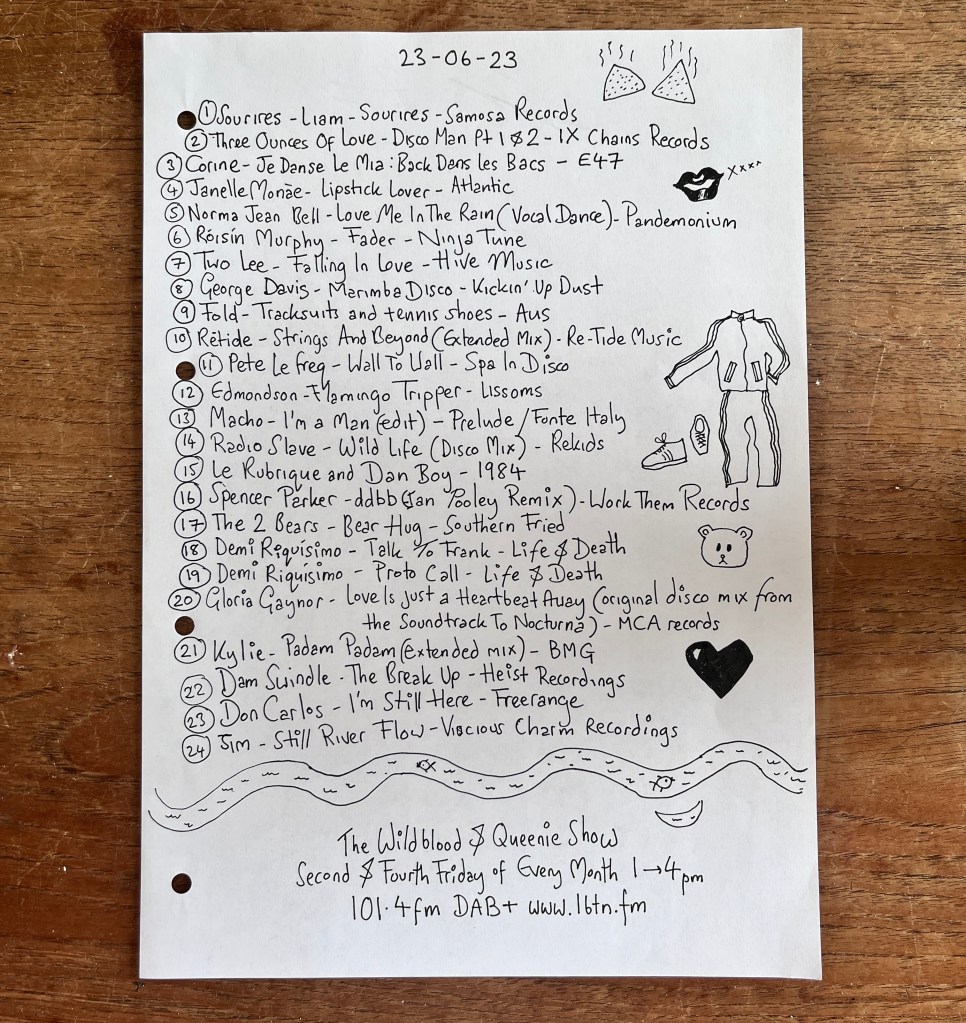 23-06-23
① Sourires - Liam - Sourires - Samosa Records
② Three Ounces Of Love - Disco Man Pt 1 & 2 - IX Chains Records
③ Corine - Je Danse Le Mia : Back Dans les Bacs - E47
④ Janelle Monàe - Lipstick Lover - Atlantic
xxxx
⑤ Norma Jean Bell - Love Me In The Rain (Vocal Dance) - Pandemonium
⑥ Róisín Murphy - Fader - Ninja Tune
⑦ Two Lee - Falling In Love - Hive Music
⑧ George Davis - Marimba Disco - Kickin' Up Dust
⑨ Fold - Tracksuits and tennis shoes - Aus
⑩ Rétide - Strings And Beyond (Extended Mix) - Re-Tide Music
⑪ Pete Le Freq - Wall To Wall - Spa In Disco
⑫ Edmondson - Flamingo Tripper - Lissoms
⑬ Macho - I'm a Man (edit) - Prelude / Fonte Italy
⑭ Radio Slave - Wild Life (Disco Mix) - Rekids
⑮ Le Rubrique and Dan Boy - 1984
⑯ Spencer Parker - ddbb (Jan Pooley Remix) - Work Them Records
⑰ The 2 Bears - Bear Hug - Southern Fried
⑱ Demi Riquísimo - Talk To Frank - Life & Death
⑲ Demi Riquísimo - Proto Call - Life & Death
⑳ Gloria Gaynor - Love Is Just a Heartbeat Away (original disco mix from
the Soundtrack To Nocturna) - MCA records
㉑ Kylie - Padam Padam (extended mix) - BMG
㉒ Dam Swindle - The Break Up - Heist Recordings
㉓ Don Carlos - I'm Still Here - Freerange
㉔ Jim - Still River Flow - Viscious Charm Recordings
The Wildblood & Queenie Show
Second & Fourth Friday of Every Month 1 → 4pm
101.4fm DAB+ www.1btn.fm